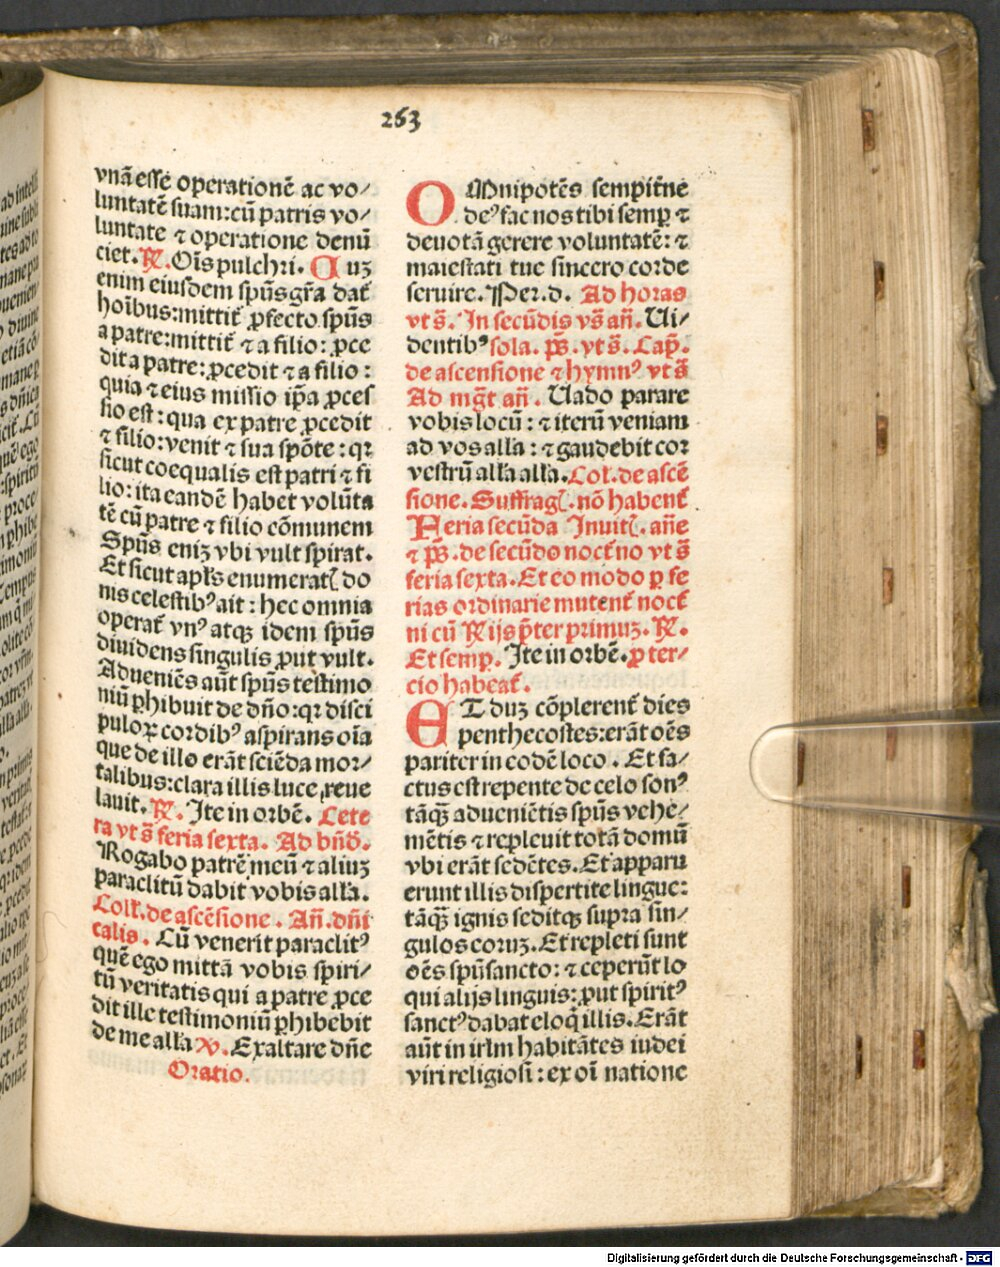 263
vnā esse operationē ac vo/
luntatē suam:cū patris vo/
luntate ⁊ operatione denū
ciet.℟.Oīs pulchri. Quꝫ
enim eiusdem spūs gr̄a dat̄
hoībus:mittit̄ ꝓfecto spūs
a patre:mittit̄ ⁊ a filio: ꝓce
dit a patre: ꝓcedit ⁊ a filio :
quia ⁊ eius missio ip̄a ꝓces
sio est: qua ex patre ꝓcedit
⁊ filio: venit ⁊ sua spōte : qꝛ
sicut coequalis est patri ⁊ fi
lio: ita eandē habet volūta
tē cū patre ⁊ filio cōmunem
Spūs eniꝫ vbi vult spirat.
Et sicut apl̄s enumerat̄ do
nis celestibꝰ ait : hec omnia
operat̄ vnꝰ atqꝫ idem spūs
diuidens singulis ꝓut vult.
Adueniēs aūt spūs testimo
niū ꝑhibuit de dn̄o: qꝛ disci
puloꝝ cordibꝰ aspirans oīa
que de illo erāt sciēda mor/
talibus: clara illis luce reue
lauit. ℟. Ite in orbē. Cete
ra vt s̄ feria sexta. Ad bn̄d̄.
Rogabo patrē meū ⁊ aliuꝫ
paraclitū dabit vobis all̄a.
Coll̄.de ascēsione . An̄.dn̄i
calis. Cū venerit paraclitꝰ
quē ego mittā vobis spiri/
tū veritatis qui a patre ꝓce
dit ille testimoniū ꝑhibebit
de me all̄a ℣. Exaltare dn̄e
Oratio.
OMnipotēs sempit̄ne
deꝰ fac nos tibi semꝑ ⁊
deuotā gerere voluntatē: ⁊
maiestati tue sincero corde
seruire. Per.d. Ad horas
vt s̄. In secūdis vs̄ an̄. Ui/
dentibꝰ sola. p̄s. vt s̄. Cap̄.
de ascensione ⁊ hymnꝰ vt s̄
Ad mḡt an̄ . Uado parare
vobis locū : ⁊ iterū veniam
ad vos all̄a : ⁊ gaudebit cor
vestrū all̄a all̄a. Col. de ascē
sione. Suffraḡ. nō habent̄
Feria secūda Inuit̄. an̄e
⁊ p̄s. de secūdo noct̄no vt s̄
feria sexta. Et eo modo ꝑ fe
rias ordinarie mutent̄ noct̄
ni cū ℟ijs p̄ter primuꝫ. ℟.
Et semꝑ. Ite in orbē. ꝓ ter/
cio habeat̄.
ET duꝫ cōplerent̄ dies
penthecostes: erāt oēs
pariter in eodē loco . Et fa/
ctus est repente de celo sonꝰ
tāqꝫ adueniētis spūs vehe/
mētis ⁊ repleuit totā domū
vbi erāt sedētes. Et apparu
erunt illis dispertite lingue:
tāqꝫ ignis seditqꝫ supra sin/
gulos eoruꝫ. Et repleti sunt
oēs spūsancto: ⁊ ceperūt lo
qui alijs linguis: ꝓut spiritꝰ
sanctꝰ dabat eloq̄ illis. Erāt
aūt in irl̄m habitātes iudei
viri religiosi : ex oī natione
Digitalisierung gefördert durch die Deutsche Forschungsgemeinschaft - DFG